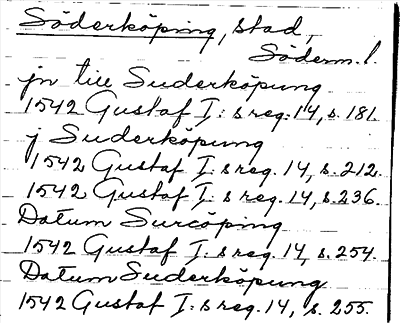 Söderköping, stad,
Söderm. l.
jn till Suderköpung
1542 Gustaf I: s reg. 14, s. 181.
j Suderköpung
1542 Gustaf I: s reg. 14, s. 212.
1542 Gustaf I: s reg. 14, s. 236.
Datum Surcöping
1542 Gustaf I: s reg. 14, s. 254.
Datum Suderköpung
1542 Gustaf I: s reg. 14, s. 255.